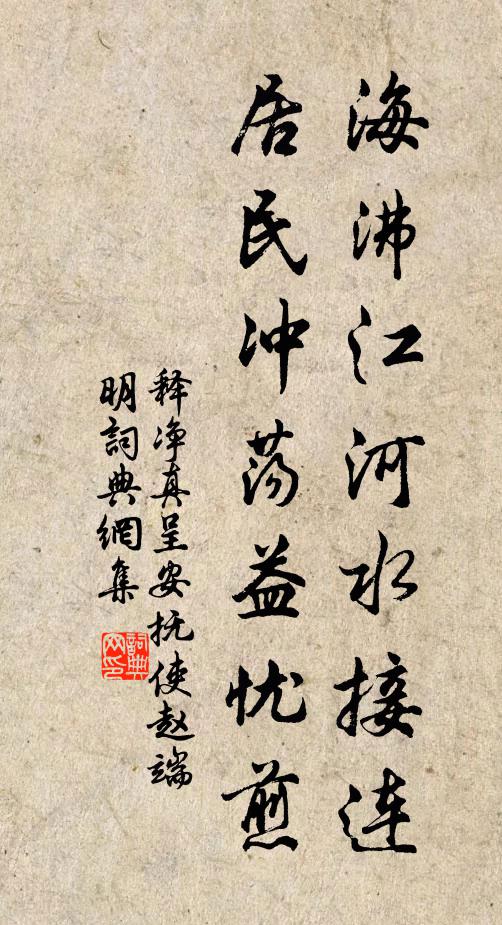 海沸江河水接连
居民冲荡益忧煎
释净真呈安抚使赵端
明词典網集
詞典網印